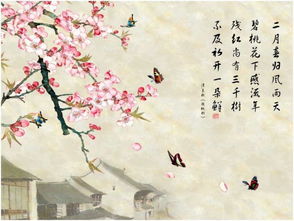 二月春归風雨天
碧桃花下感流年
残红尚有三千樹
不及初开一朵鮮